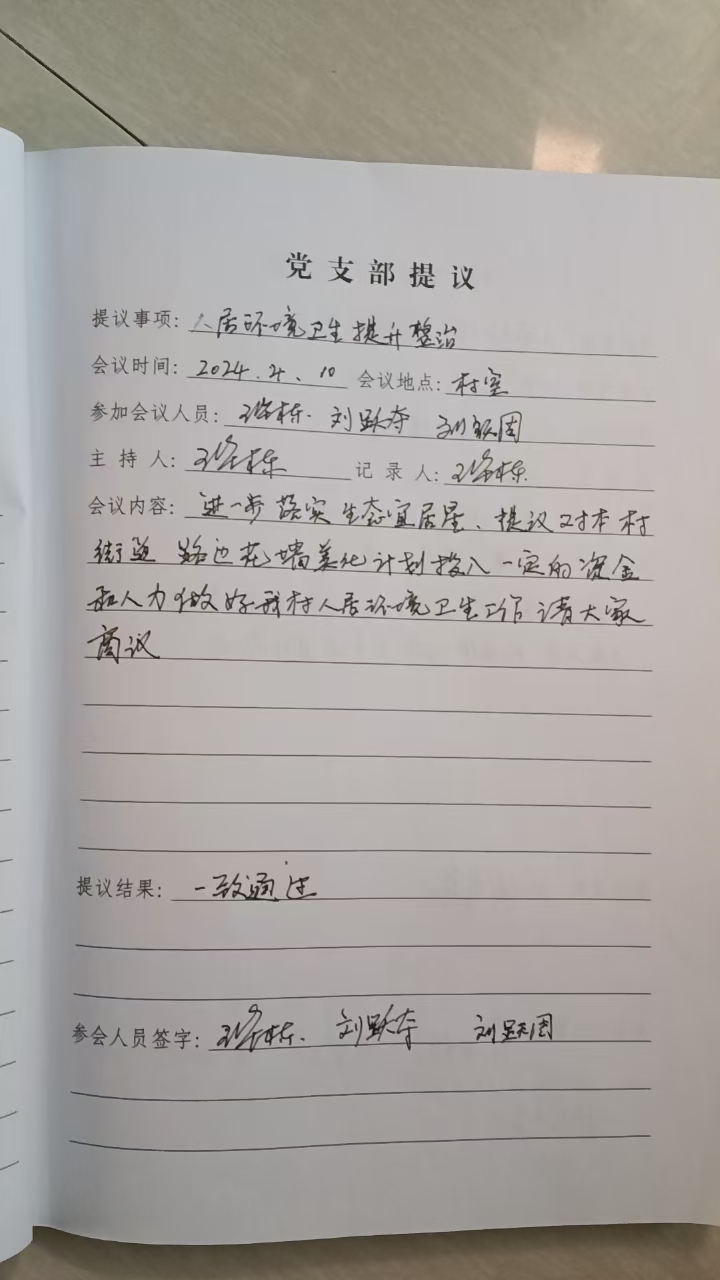 党支部提议
提议事项：人居环境卫生提升整治
会议时间：2024.4.10 会议地点：村室
参加会议人员：栋. 刘跃夺 刘跃周
主持人：栋 记录人：栋.
会议内容：进一步落实生态宜居星、提议对本村
街道 路边花墙美化计划投入一定的资金
和人力做好我村人居环境卫生工作请大家
商议
提议结果：一致通过
参会人员签字：栋. 刘跃夺 刘跃周